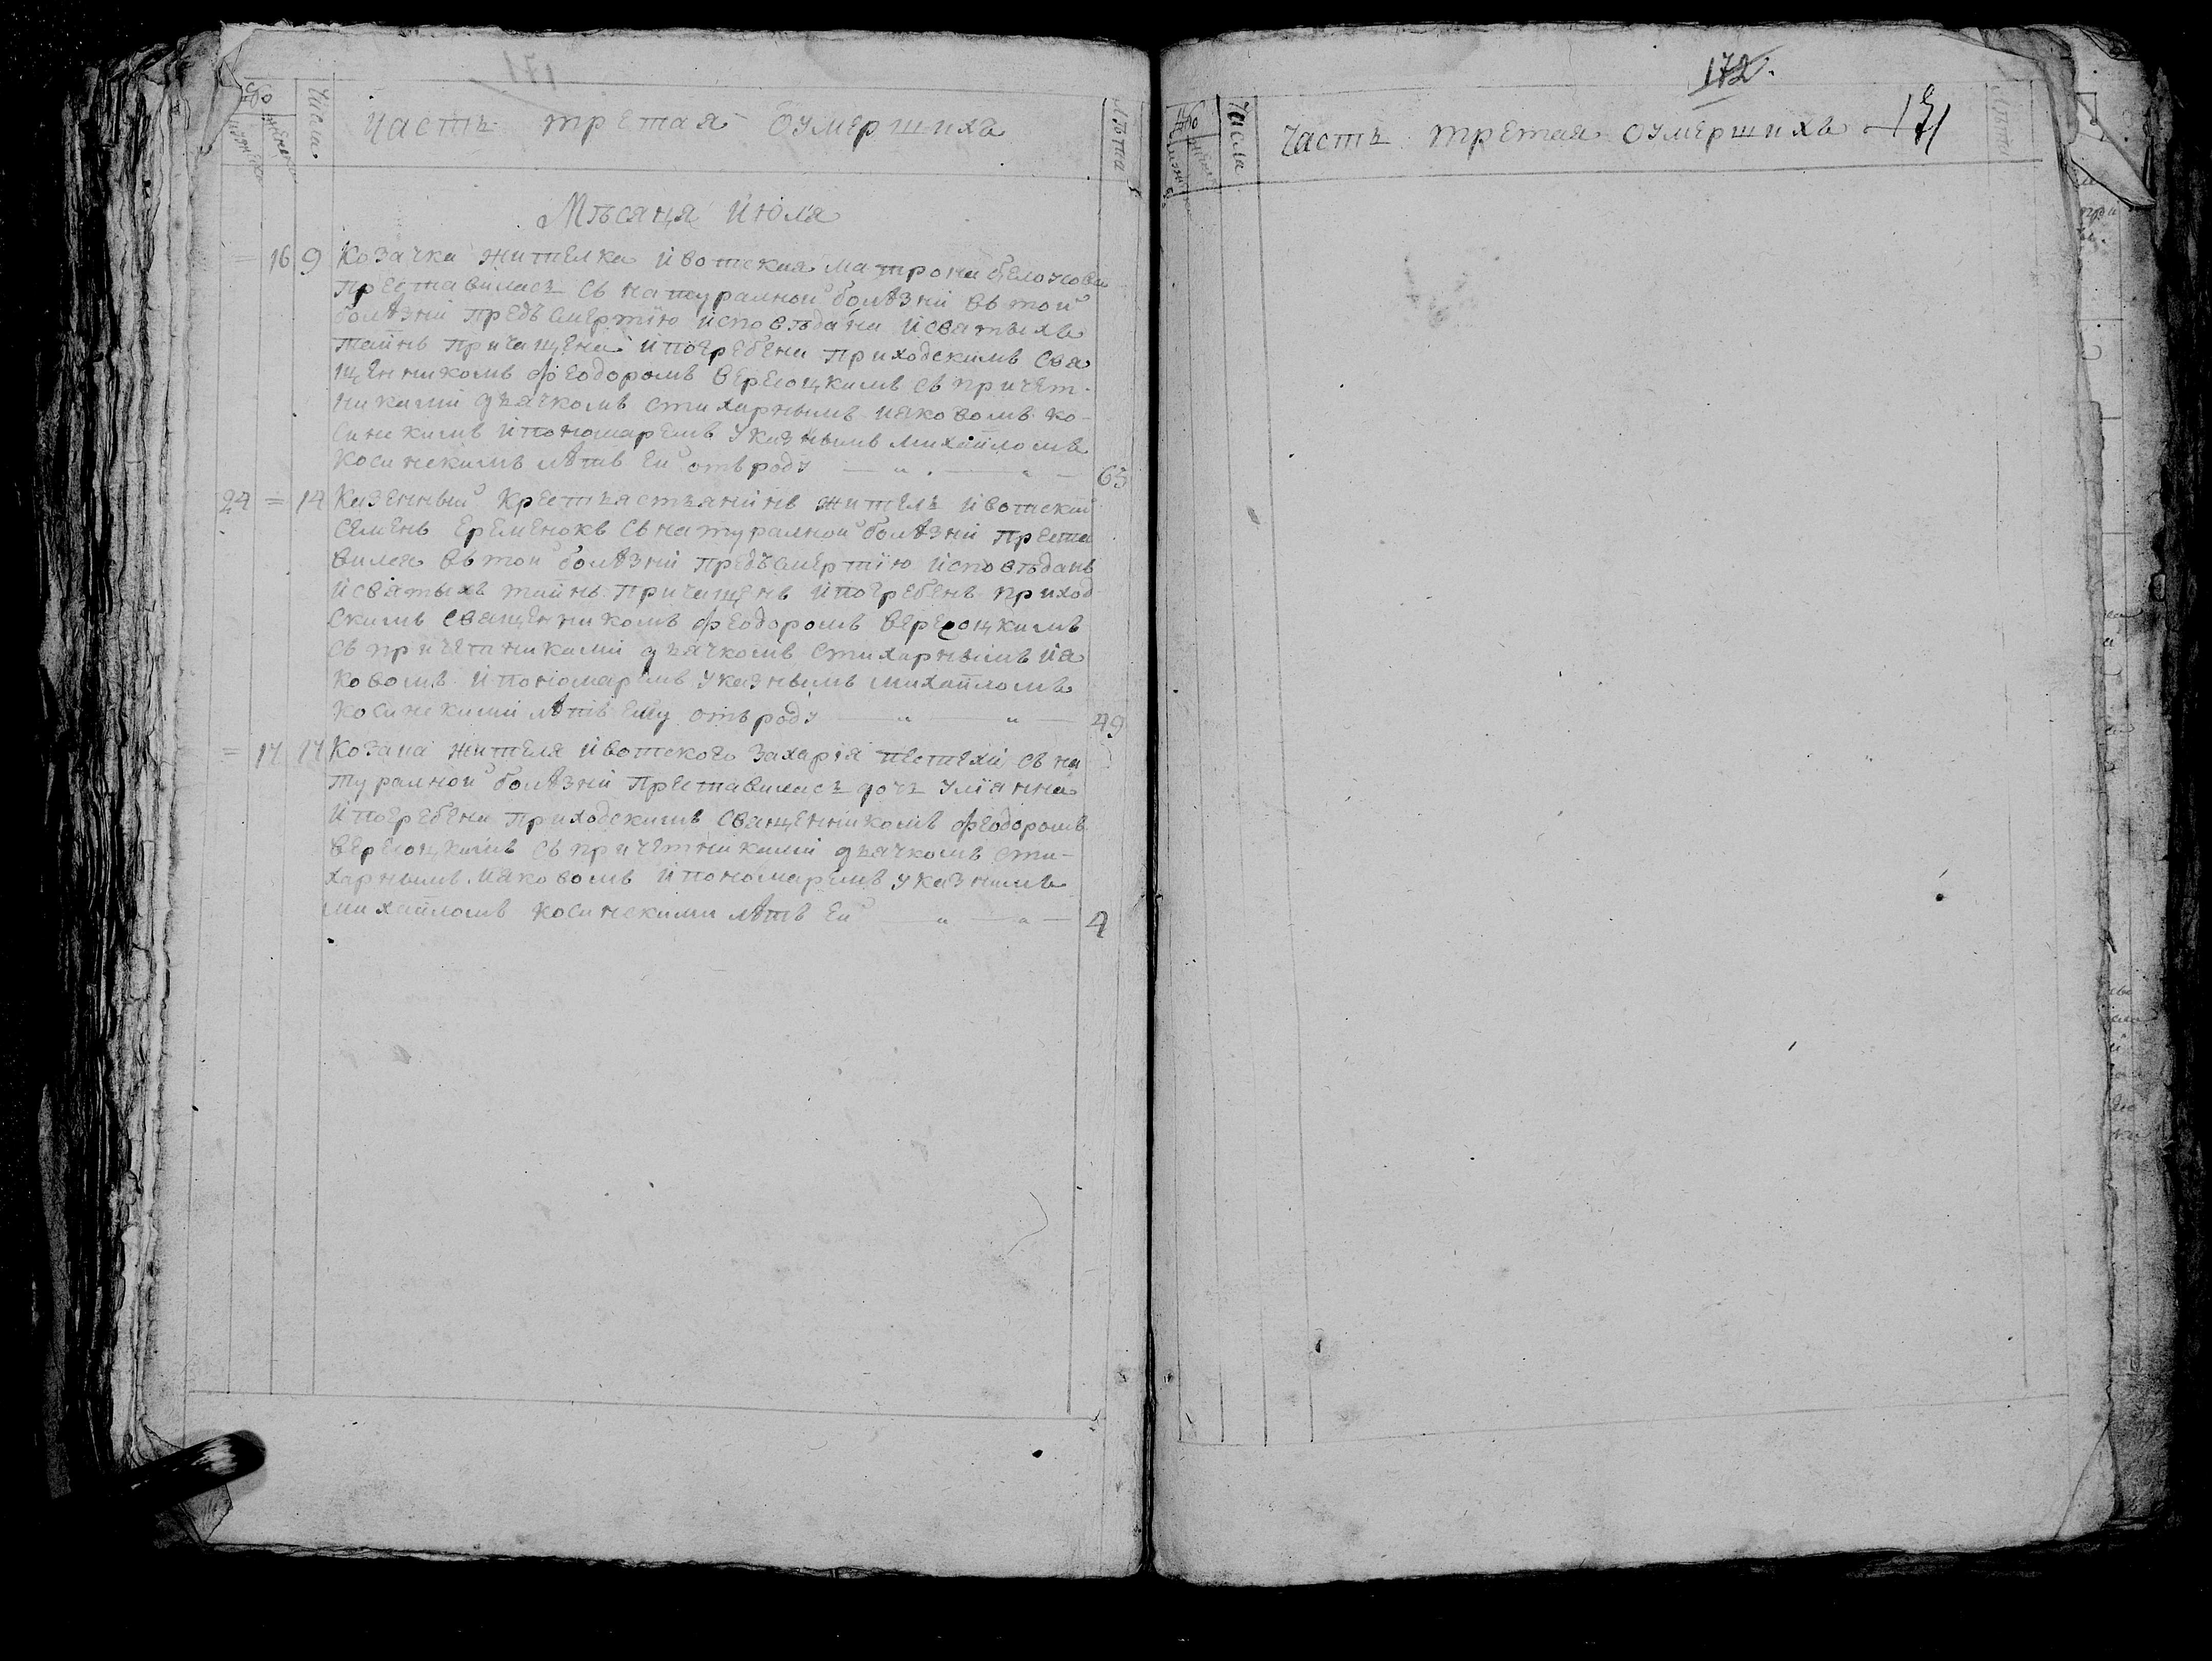 171
Часть третая оумершихъ
Число
Лѣта
Мѣсяця Июля
= 16 9 Козачка жителка Ивотская Матрона
преставилась съ натуралной болѣзни въ той
болѣзни предъ смертию исповѣдана и святыхъ
таинъ причащена и погребена приходскимъ свя
щенникомъ Феодоромъ Вересоцкимъ съ причет-
никами дьячкомъ стихарнымъ Иаковомъ Ко-
синскимъ и пономаремъ указнымъ Михайломъ
Косинскимъ лѣтъ ей отъ роду 63
24 = 14 Казенный крестьястьянинъ житель Ивотский
Семенъ Еременокъ съ натуралной болѣзни преста
вился въ той болѣзни предъ смертию исповѣданъ
и святыхъ таинъ причащенъ и погребенъ приход
скимъ священникомъ Феодоромъ Вересоцкимъ
съ причетниками дьячкомъ стихарнымъ Иа
ковомъ и пономаремъ указнымъ Михайломъ
Косинскими лѣтъ ему отъ роду 49
= 17 17 Козака жителя Ивотского Захария съ на
туралной болѣзни преставилась дочь Улианна
и погребена приходскимъ священникомъ Феодоромъ
Вересоцкимъ съ причетниками дьячкомъ сти-
харнымъ Иаковомъ и пономаремъ указнимъ
Михайломъ Косинскими лѣтъ ей 4
172.
171
Числа
Часть третая оумершихъ
Лѣта